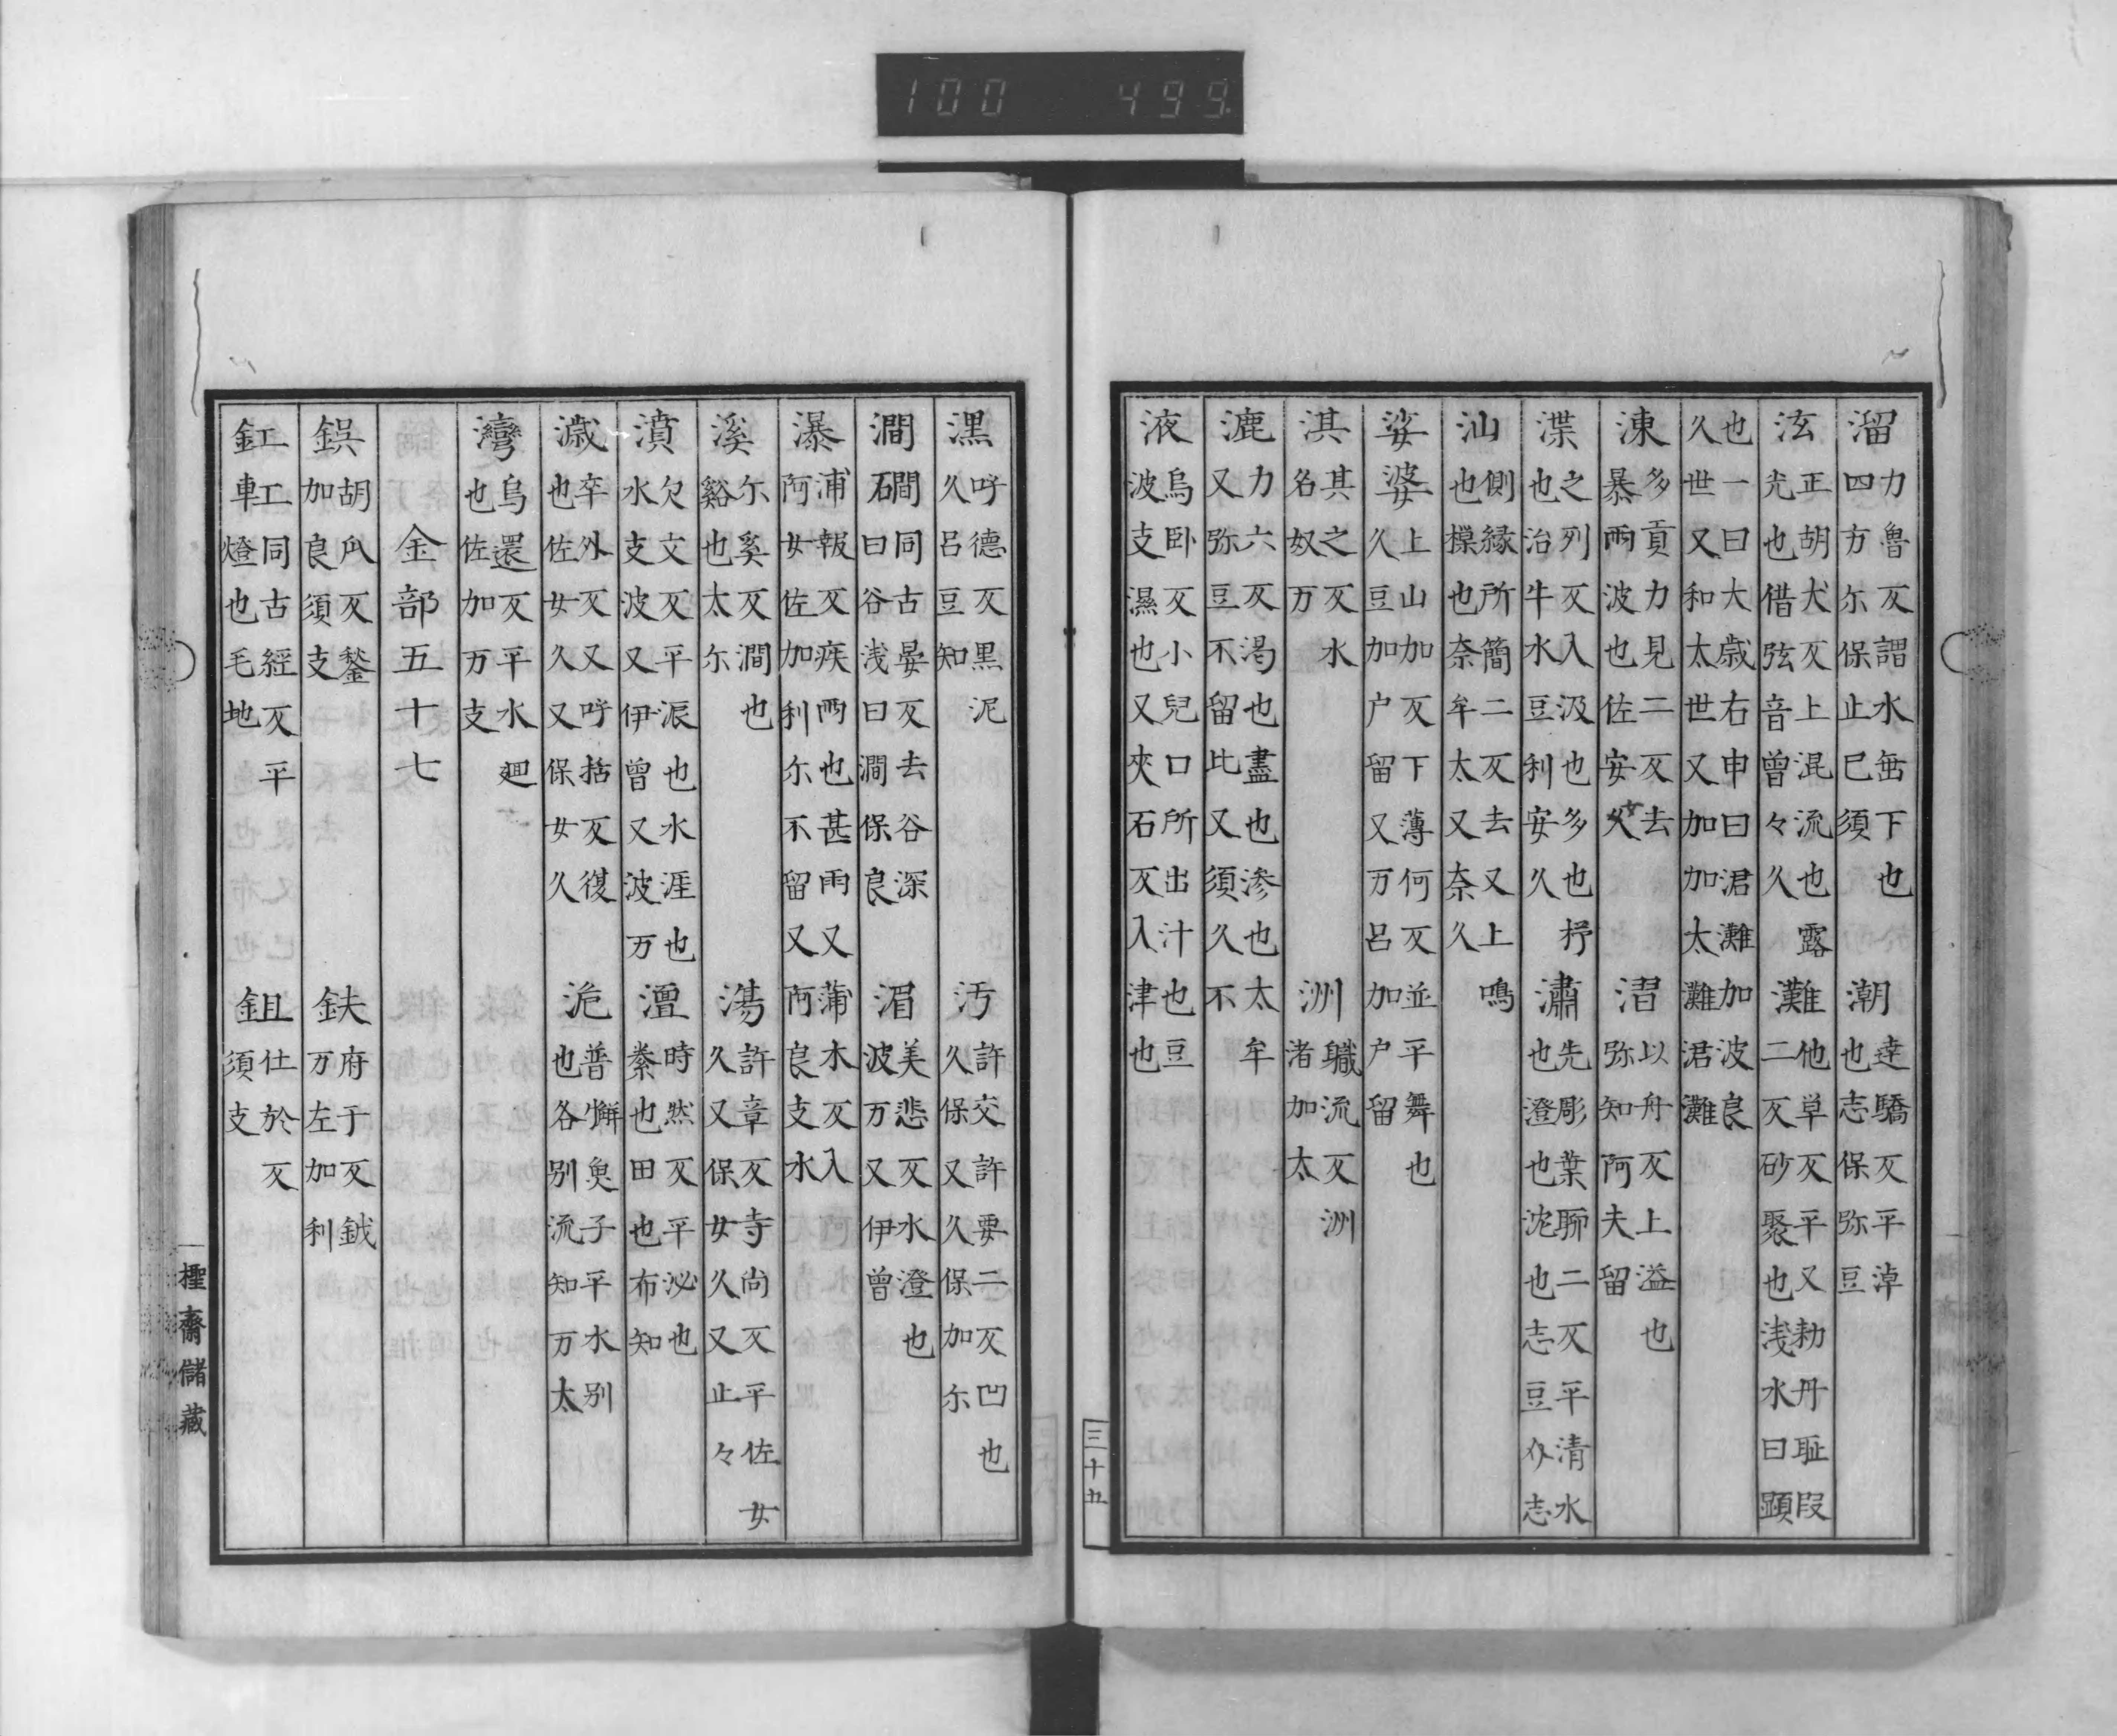 100 499
溜 力魯反謂水缶下也四方尓保止巳須 潮 逹驕反平淖也志保弥豆
泫 正胡犬反上混流也露光也借弦音曽々久 灘 他単反平又勅丹耻段二反砂聚也浅水曰顕
也一曰大歳右申曰涒灘加波良久世又和太世又加加太灘涒灘
涷 多貢力見二反去暴雨波也佐安久 㴔 以舟反上溢也弥知阿夫留
渫 之列反入汲也多也抒也治牛水豆利安久 潚 先彫葉聊二反平清水也澄也沱也志豆介志
汕 側縁所簡二反去又上鳴也樔也奈牟太又奈久
娑婆 上山加反下薄何反並平舞也久豆加户留又万呂加户留
淇 其之反水名奴万 洲 職流反洲渚加太
漉 力六反渇也盡也渗也太牟又弥豆不留比又須久不
液 烏卧反小兒口所出汁也豆波支濕也又夾石反入津也
三十五
潶 呼德反黒泥久呂豆知 汚 許交許要二反凹也久保又久保加尓
澗 澗同古晏反去谷深石曰谷浅曰澗保良 湄 美悲反水澄也波万又伊曽
瀑 浦報反疾雨也甚雨又蒲木反入阿女佐加利尓不留又阿良支水
溪 尓奚反澗也谿也太尓 蕩 許章反寺尚反平佐女久又保女久又止々
濆 欠文反平派也水涯也水支波又伊曽又波万 澶 時然反平泌也絭也田也布知
濊 卒外反又呼括反獲也佐女久又保女久 㳈 普懈臾子平水别也各别流知万太
灣 烏還反平水廻也佐加万支
金部五十七
鋘 胡瓜反鍫加良須支 鈇 府于反鉞万左加利
釭 工同古經反平車燈也毛地 鉏 仕於反須支
㮒齋儲藏